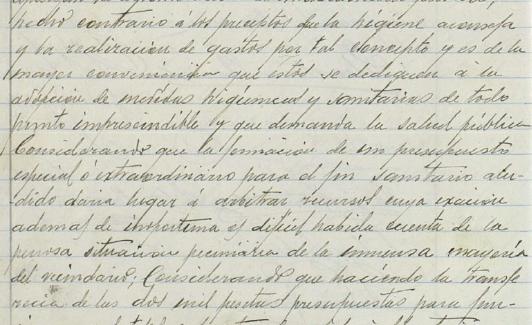 hecho contrario á los preceptos que la higiene aconseja
y la realización de gastos por tal concepto y es de la
mayor conveniencia que estos se dediquen á la
adopcion de medidas higienicas y sanitarias de todo
punto imprescindible y que demanda la salud pública
Considerando que la formacion de un presupuesto
especial ó extraordinario para el fin sanitario alu-
dido daria lugar á arbitrar recursos cuya exacion
ademas de inoportuna es dificil habida cuenta de la
penosa situacion pecuniaria de la inmensa mayoria
del vecindario; Considerando que haciendo la transfe
recia de las dos mil pesetas presupuestas para